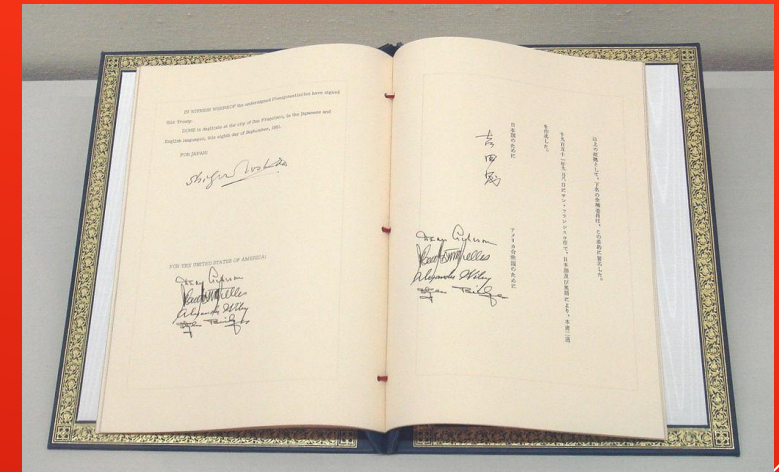 IN WITNESS WHEREOF the undersigned Plenipotentiaries have signed
this Treaty.
DONE in duplicate at the city of San Francisco, in the Japanese and
English languages, this eighth day of September, 1951.
FOR JAPAN:
Shigeru Yoshida
FOR THE UNITED STATES OF AMERICA:
Alexander Wiley
以上の証拠として、下名の全権委員は、この条約に署名した。
千九百五十一年九月八日にサン・フランシスコ市で、日本語及び英語により、本書二通
を作成した。
日本国のために
吉田茂
アメリカ合衆国のために
Alexander Wiley